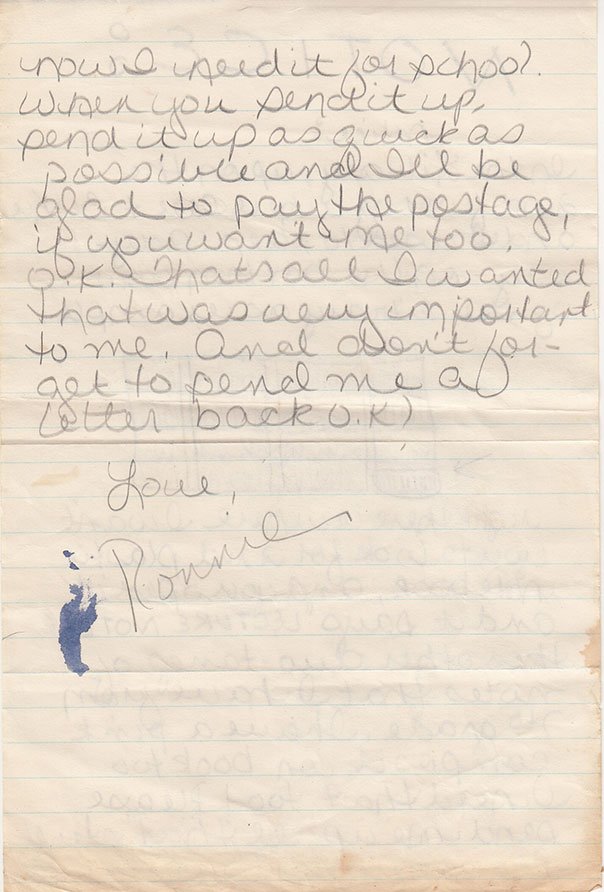 now I need it for school.
When you send it up,
send it up as quick as
possible and I'll be
glad to pay the postage,
if you want me too.
O.K. Thats all I wanted
that was very important
to me. And don't for-
get to send me a
letter back O.K)
Love,
Ronnie